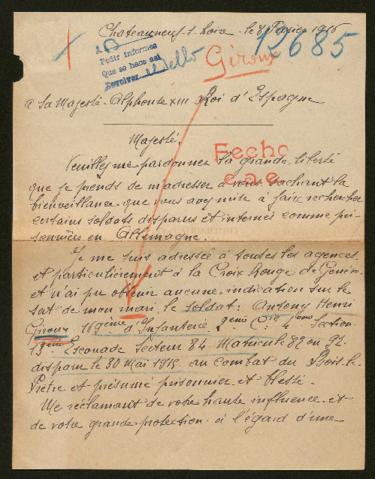 Chateauneuf s. Loire le 8 Février 1916
12685
Pedir informes
Que se hace así
Giroux
à sa Majesté Alphonse XIII Roi d'Espagne
Majesté.
Fecho
Veuillez me pardonner la grande liberté
que je prends de m'adresser à vous sachant la
bienveillance que vous avez mise à faire rechercher
certains soldats disparus et internés comme pri-
sonniers en Allemagne.
Je me suis adressée à toutes les agences
et particulièrement à la Croix Rouge de Genève
et n'ai pu obtenir aucune indication sur le
sort de mon mari, le soldat: Antony Henri
Giroux d'Infanterie, 2ème Cie 4ème Section
13ème Escouade Secteur 84 Matricule
disparu le 30 Mai 1915 au combat du Bois le
Prêtre et présumé prisonnier et blessé.
Me réclamant de votre haute influence et
de votre grande protection à l'égard d'une